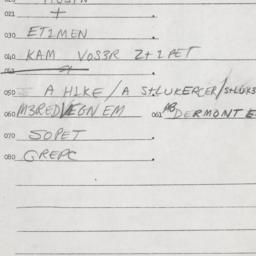 021 +
030 ETIMEN
040 KAM VOS3R 2+2PET
050 A HIKE / A S+LUKERCER/S+LUKS
060 M3RED/EGNEM 061 DERMONT E
070 SOPET
080 GREPC